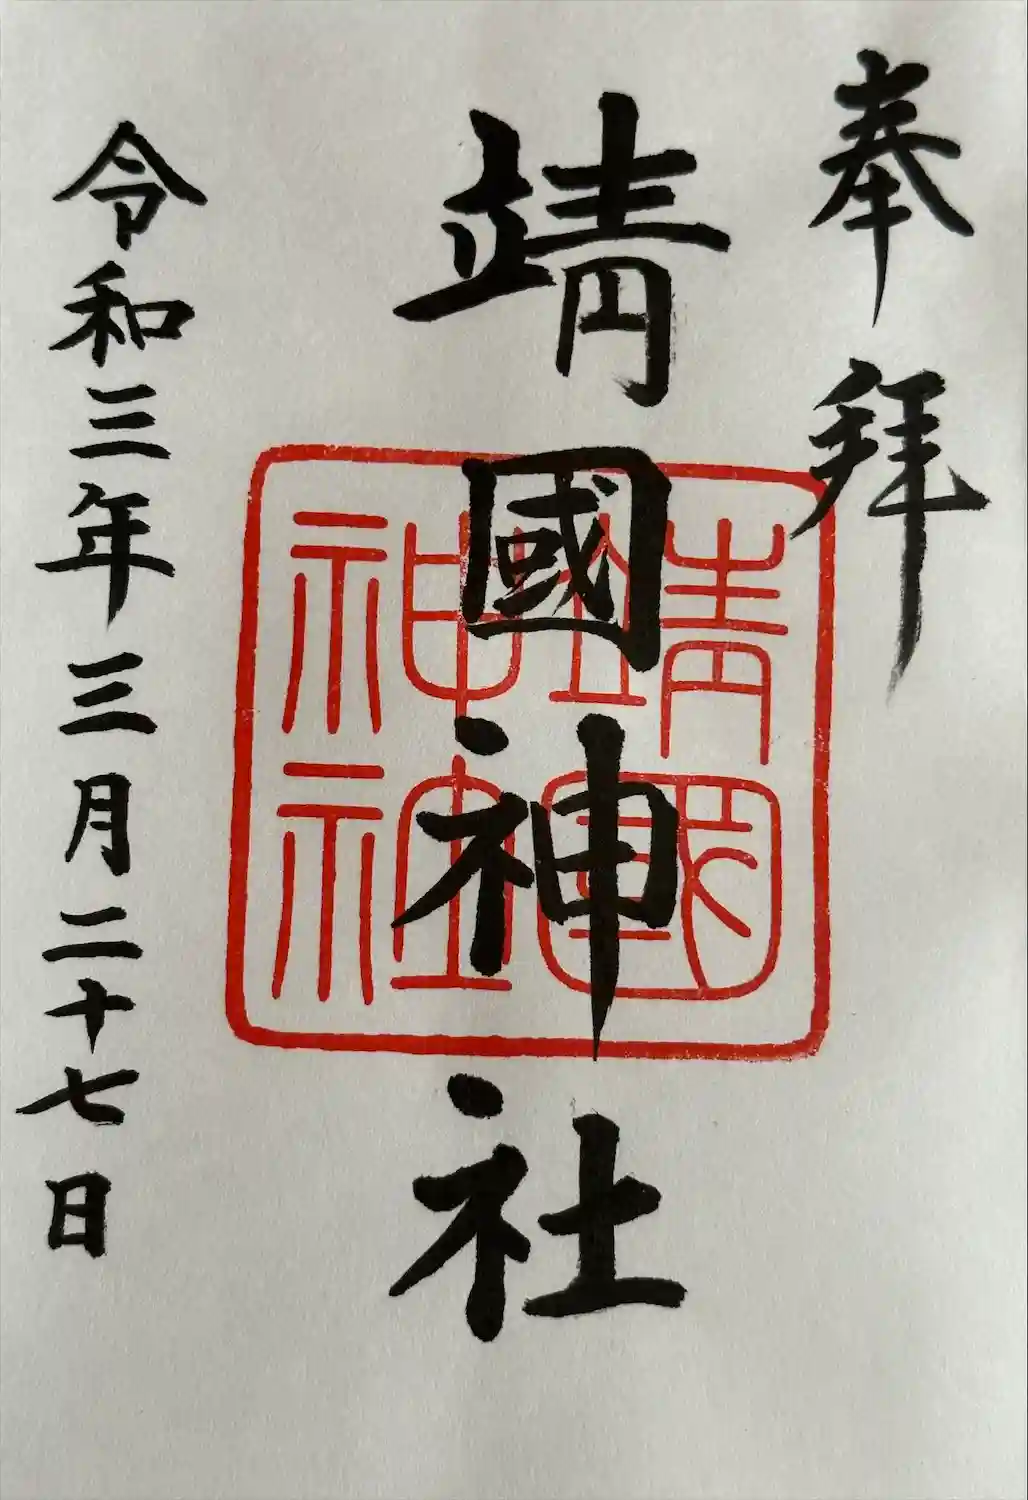 奉拜
靖國神社
靖國
神社
令和三年三月二十七日